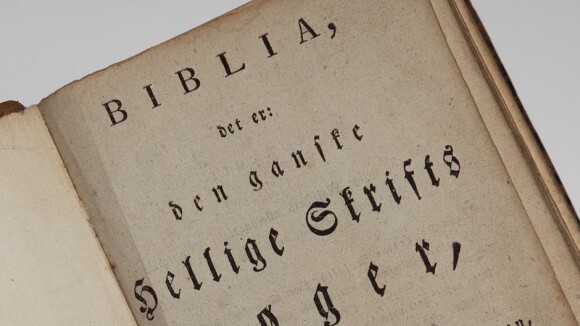 BIBLIA,
det er:
den ganske
Hellige Skrifts
gger,